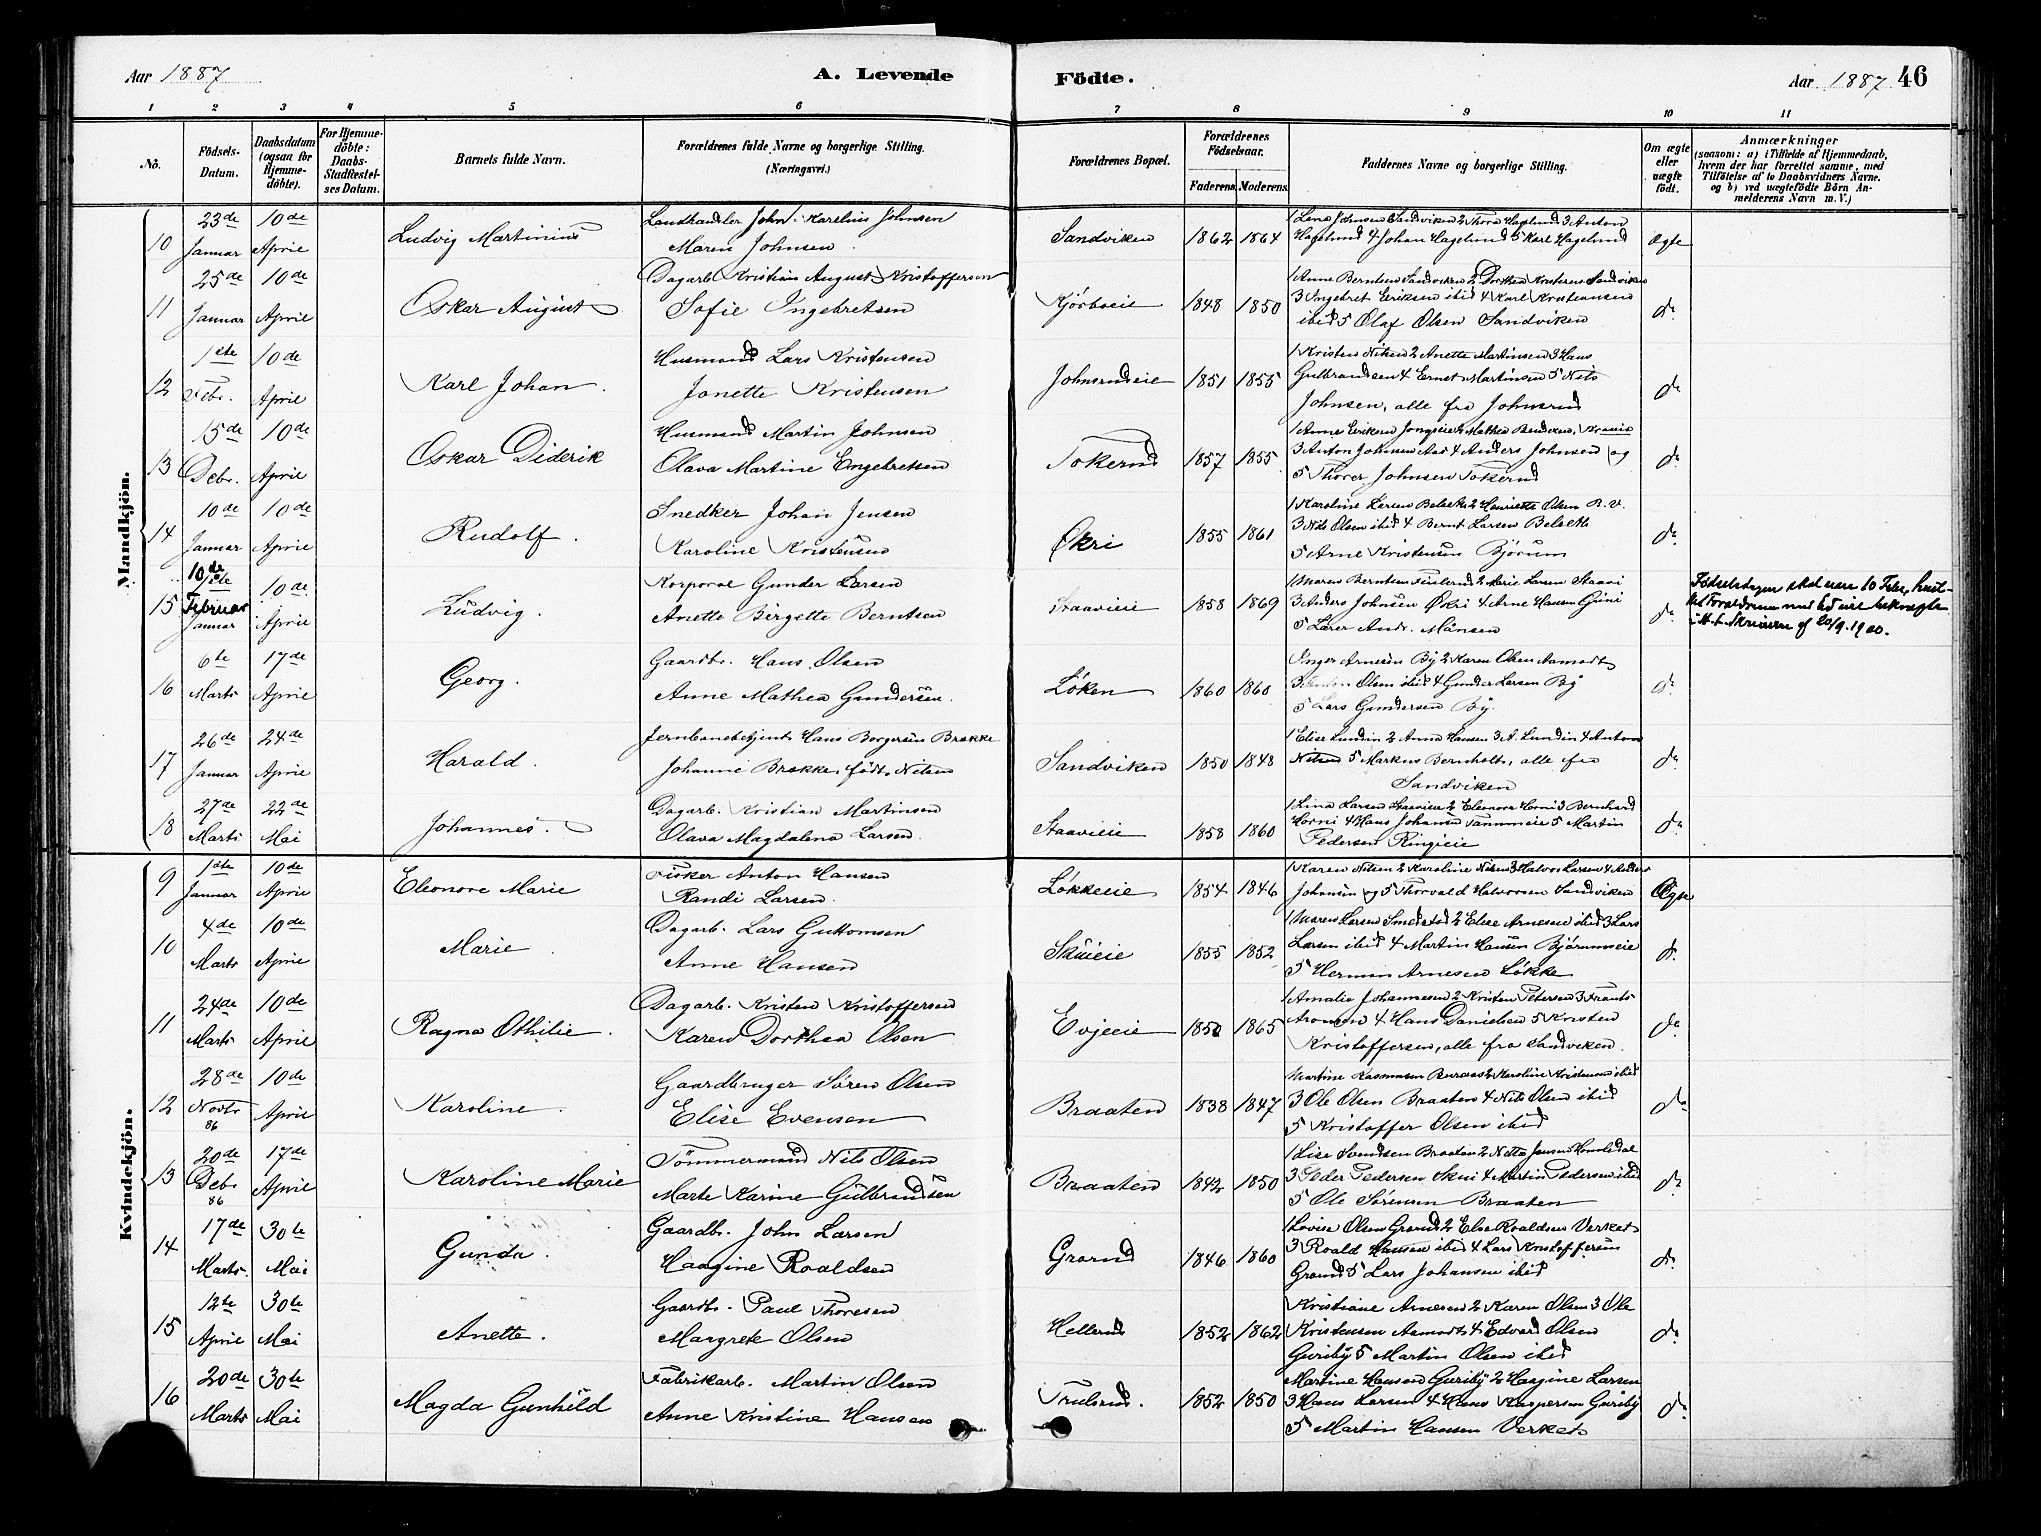 Aar 1887
A. Levende
Födte.
Aar 1887
46
1 2 3 4 5 6 7 8 9 10 11
No.
Födsels-Datum.
Daabsdatum (ogsaa för Hjemme-döbte).
For Hjemme-döbte: Daabs-Stadfæstel-ses Datum.
Barnets fulde Navn.
Forældrenes fulde Navne og borgerlige Stilling.
(Næringsvei.)
Forældrenes Bopæl.
Forældrenes Födselsaar.
Faderens. Moderens.
Faddernes Navne og borgerlige Stilling.
Om ægte eller uægte födt.
Anmærkninger
(saasom: a) i Tilfælde af Hjemmedaab,
hvem der har forrettet samme, med
Tilföielse af to Daabsvidners Navne,
og b) ved uægtefödte Börn An-
melderens Navn m. V.)
Mandkjön.
10 23de Januar 10de April Ludvig Martinius Landhandler John Karelius Johnsen
Maren Johnsen Sandviken 1862 1864 1 Lena Johnsen Sandviken 2 Thora Hagelund 3 Anton
Hagelund 4 Johan Hagelund 5 Karl Hagelund Ægte
11 25de Januar 10de April Oskar August Dagarb. Kristian August Kristoffersen
Sofie Ingebretsen Kjørboeie 1848 1850 1 Anne Berntsen Sandviken 2 Dorthea Kristensen Sandviken
3 Ingebret Eriksen ibid 4 Karl Kristiansen
ibid 5 Olaf Olsen Sandviken do
12 1ste Febr. 10de April Karl Johan Husmand Lars Kristensen
Janette Kristensen Johnsrudeie 1851 1855 1 Kristen Nilsen 2 Anette Martinsen 3 Hans
Gulbrandsen 4 Ernst Martinsen 5 Nils
Johnsen, alle fra Johnsrud do
13 15de Debr. 10de April Oskar Diderik Husmand Martin Johnsen
Olava Martine Engebretsen Tokerud 1857 1855 1 Anne Eriksen
3 Anton Johnsen Aas 4 Anders Johnsen og
5 Thorer Johnsen Tokerud do
14 10de Januar 10de April Rudolf Snedker Johan Jensen
Karoline Kristensen Økri 1855 1861 1 Karoline Larsen Belset 2 Henriette Olsen B. V.
3 Nils Olsen ibid 4 Bernt Larsen Belseth
5 Arne Kristensen Bjørum do
15 10de Februar Januar 10de April Ludvig Korporal Gunder Larsen
Anette Birgette Berntsen Staavieie 1858 1869 1 Maren Berntsen 2 Marie Larsen Staavi
3 Anders Johnsen Økri 4 Arne Hansen Guni
5 Lærer Andr. Månsen do
Fødselsdagen skal være 10 Febr,
20/9.1900.
16 6te Marts 17de April Georg Gaardbr. Hans Olsen
Anne Mathea Gundersen Løken 1860 1860 Inger Arnesen By 2 Karen Olsen Aamodt
3 Olsen ibid 4 Gunder Larsen By
5 Lars Gundersen By. do
17 26de Januar 24de April Harald Jernbanebetjent Hans Borgersen Brække
Johanne Brække, født Nilsen Sandviken 1850 1848 1 Elise Lundin 2 Anna Hansen 3 A. Lundin 4 Anton
Nilsen 5 Markus Bernholt, alle fra
Sandviken do
18 27de Marts 22de Mai Johannes. Dagarb. Kristian Martinsen
Olava Magdalena Larsen Staavieie 1858 1860 1 Lina Larsen Staavieie 2 Eleonora Horni 3 Bernhard
Horni 4 Hans Johansen Tannumeie 5 Martin
Pedersen Ringieie do
Kvindekjön.
9 1ste Januar 10de April Eleonore Marie Fisker Anton Hansen
Randi Larsen Løkkeeie 1854 1846 1 Karen Nilsen 2 Karoline Nilsen 3 Halvor Larsen 4 Anders
Johnsen og 5 Thorvald Halvorsen Sandviken Ægte
10 4de Marts 10de April Marie Dagarb. Lars Guttormsen
Anne Hansen Skuieie 1855 1852 1 Maren Larsen Smedstad 2 Elise Arnesen ibid 3 Lars
Larsen ibid 4 Martin Hansen Bjørumeie
5 Herman Arnesen Løkke do
11 24de Marts 10de April Ragna Othilie Dagarb. Kristen Kristoffersen
Karen Dorthea Olsen Evjeeie 1850 1865 1 Amalie Johannesen 2 Kristen Petersen 3 Frants
Aronsen 4 Hans Danielsen 5 Kristen
Kristoffersen, alle fra Sandviken. do
12 28de Novbr 86 10de April Karoline Gaardbruger Søren Olsen
Elise Evensen Braaten 1838 1847 Martine Rasmussen 2 Karoline Kristensen ibid
3 Ole Olsen Braaten 4 Nils Olsen ibid
5 Kristoffer Olsen ibid do
13 20de Debr 86 17de April Karoline Marie Tømmermand Nils Olsen
Marte Karine Gulbrandsen Braaten 1842 1850 1 Lise Svendsen Braaten 2 Jensen Homledal
3 Peder Pedersen Skui 4 Martin Pedersen ibid
5 Ole Sørensen Braaten do
14 17de Marts 30te Mai Gunda Gaardbr. John Larsen
Haagine Roaldsen Grorud 1846 1860 1 Lovise Olsen Grorud 2 Else Roaldsen Verket
3 Roald Hansen ibid 4 Lars Kristoffersen
Grorud 5 Lars Johansen ibid do
15 12te April 30te Mai Anette. Gaardbr. Paul Thoresen
Margrete Olsen Hellerud 1852 1862 Kristiane Arnesen 2 Karen Olsen 3 Ole
Kristensen Aamodt 4 Edvard Olsen
Guriby 5 Martin Olsen ibid do
16 20de Marts 30te Mai Magda Gunhild Fabrikarb. Martin Olsen
Anne Kristine Hansen Trulsrud. 1852 1850 Martine Hansen Guriby 2 Haagine Larsen
3 Hans Larsen 4 Hans Kaspersen Guriby
5 Martin Hansen Verket do